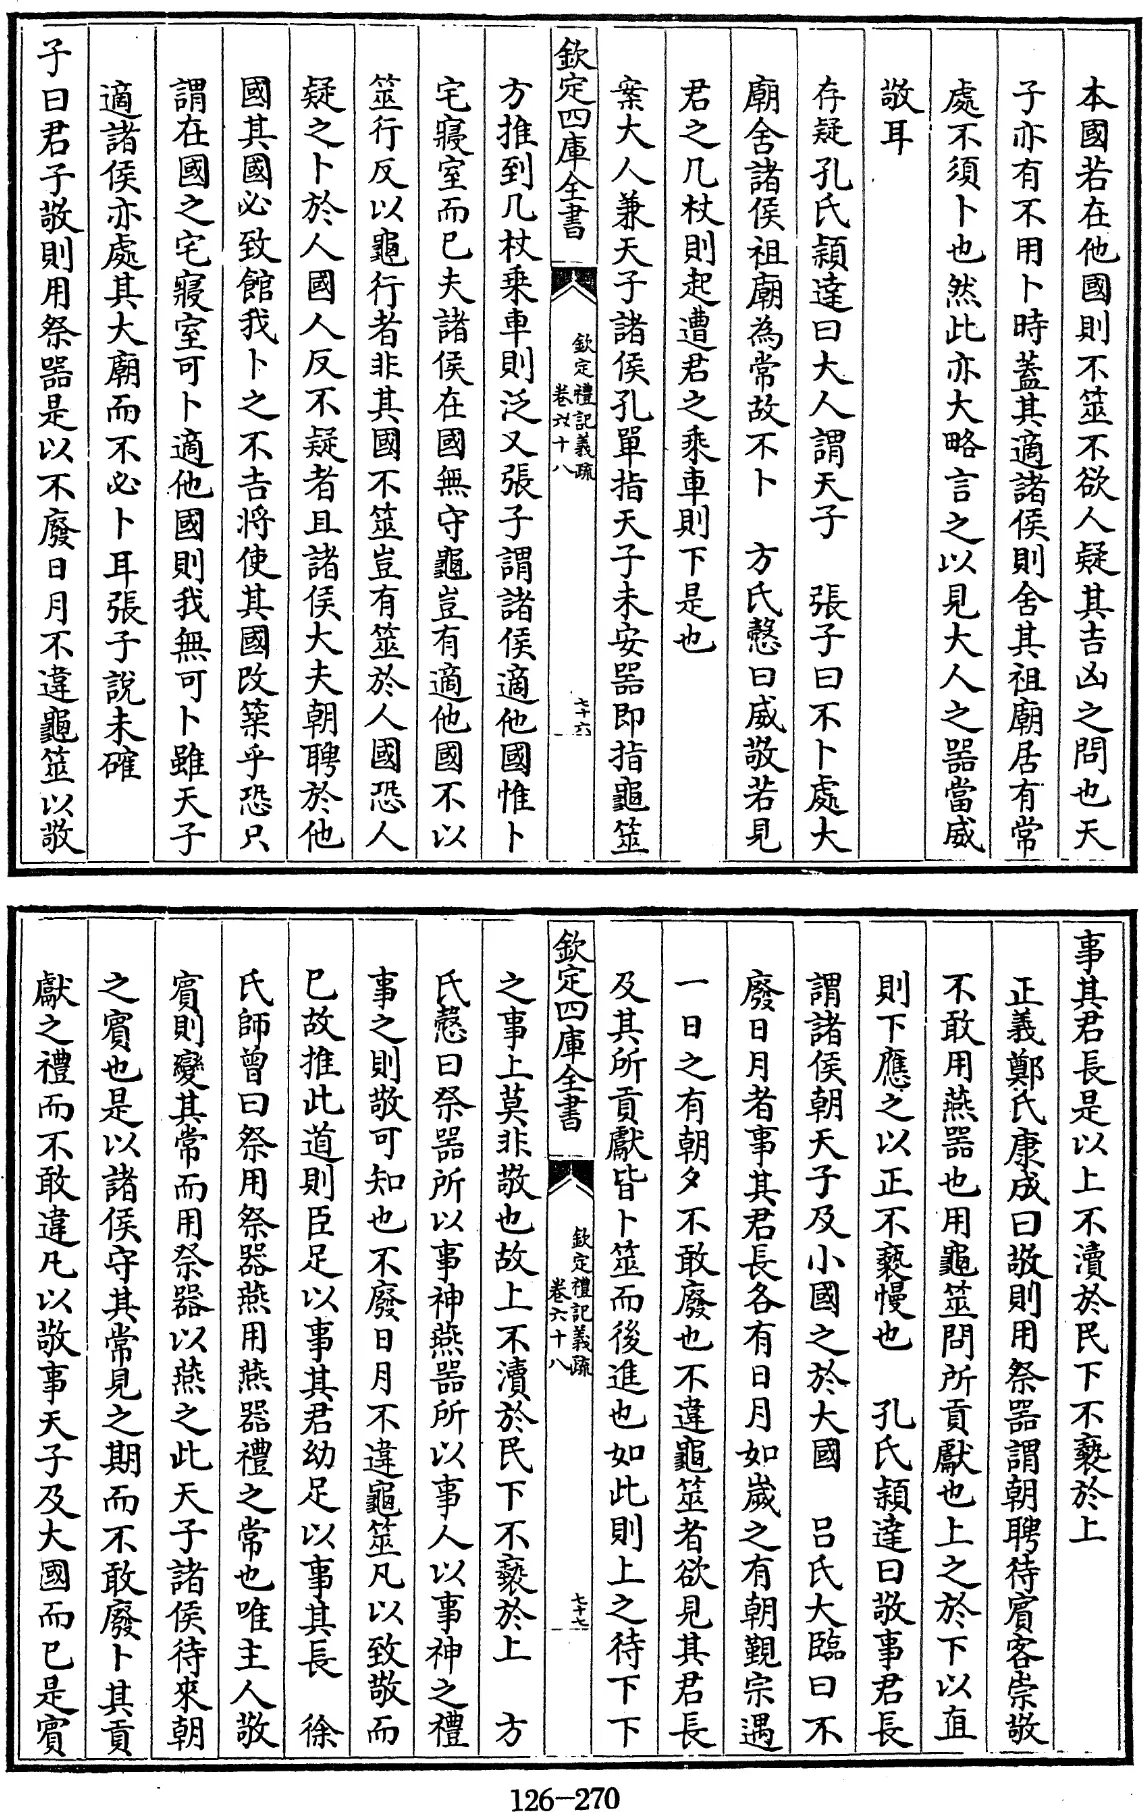 本國若在他國則不筮不欲人疑其吉凶之問也天
子亦有不用卜時蓋其適諸侯則舍其祖廟居有常
處不須卜也然此亦大略言之以見大人之器當威
敬耳
存疑孔氏穎達曰大人謂天子　張子曰不卜處大
廟舍諸侯祖廟為常故不卜　方氏慤曰威敬若見
君之几杖則起遭君之乘車則下是也
案大人兼天子諸侯孔單指天子未安器即指龜筮
欽定四庫全書
欽定禮記義疏
卷六十八
七十六
方推到几杖乗車則泛又張子謂諸侯適他國惟卜
宅寢室而已夫諸侯在國無守龜豈有適他國不以
筮行反以龜行者非其國不筮豈有筮於人國恐人
疑之卜於人國人反不疑者且諸侯大夫朝聘於他
國其國必致館我卜之不吉將使其國改築乎恐只
謂在國之宅寢室可卜適他國則我無可卜雖天子
適諸侯亦處其大廟而不必卜耳張子說未確
子曰君子敬則用祭器是以不廢日月不違龜筮以敬
事其君長是以上不瀆於民下不褻於上
正義鄭氏康成曰敬則用祭器謂朝聘待賓客崇敬
不敢用燕器也用龜筮問所貢獻也上之於下以直
則下應之以正不褻慢也　孔氏穎達曰敬事君長
謂諸侯朝天子及小國之於大國　吕氏大臨曰不
廢日月者事其君長各有日月如嵗之有朝覲宗遇
一日之有朝夕不敢廢也不違龜筮者欲見其君長
及其所貢獻皆卜筮而後進也如此則上之待下下
欽定四庫全書
欽定禮記義疏
卷六十八
七十七
之事上莫非敬也故上不瀆於民下不褻於上　方
氏慤曰祭器所以事神燕器所以事人以事神之禮
事之則敬可知也不廢日月不違龜筮凡以致敬而
已故推此道則臣足以事其君幼足以事其長　徐
氏師曾曰祭用祭器燕用燕器禮之常也唯主人敬
賓則變其常而用祭器以燕之此天子諸侯待來朝
之賓也是以諸侯守其常見之期而不敢廢卜其貢
獻之禮而不敢違凡以敬事天子及大國而已是賓
126-270